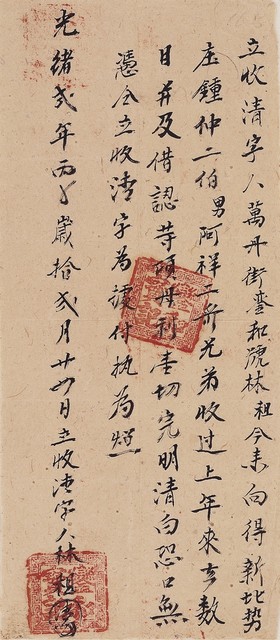 立收清字人萬丹街豐和號林祖今來向得新北勢
庄鍾仲二伯男阿祥二弁兄弟收過上年來去數
目并及借認等項母利壹切完明清白恐口無
憑今立收清字為據付执為炤
光緒弍年丙子歲拾弍月廿四日立收清字人林祖